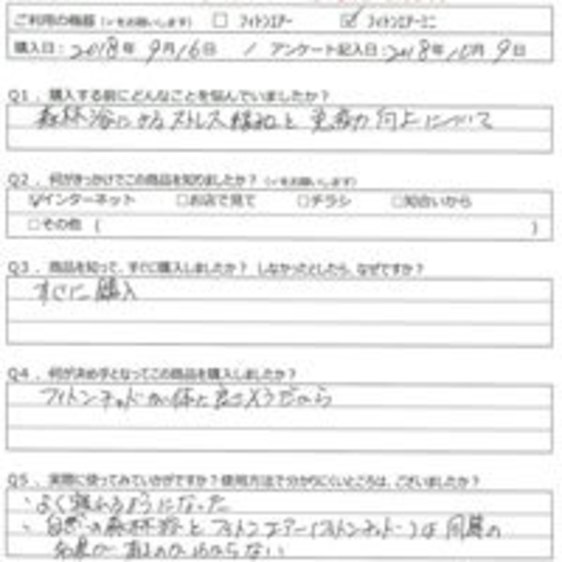 ご利用の機器 (✓をお願いします) □ フィトンエアー ☑ フィトンエアーミニ
購入日: 2018年 9月16日 / アンケート記入日: 2018年10月 9日
Q1. 購入する前にどんなことを悩んでいましたか?
森林浴によるストレス緩和と免疫力向上について
Q2. 何がきっかけでこの商品を知りましたか? (✓をお願いします)
☑インターネット □お店で見て □チラシ □知合いから
□その他 ( )
Q3. 商品を知って、すぐに購入しましたか? しなかったとしたら、なぜですか?
すぐに購入
Q4. 何が決め手となってこの商品を購入しましたか?
フィトンチッドが体に良さそうだから
Q5. 実際に使ってみていかがですか?使用方法で分かりにくいところは、ございましたか?
・よく寝れるようになった
・自然の森林浴とフィトンエアー(フィトンチッド)は同等の
効果が有るのかわからない